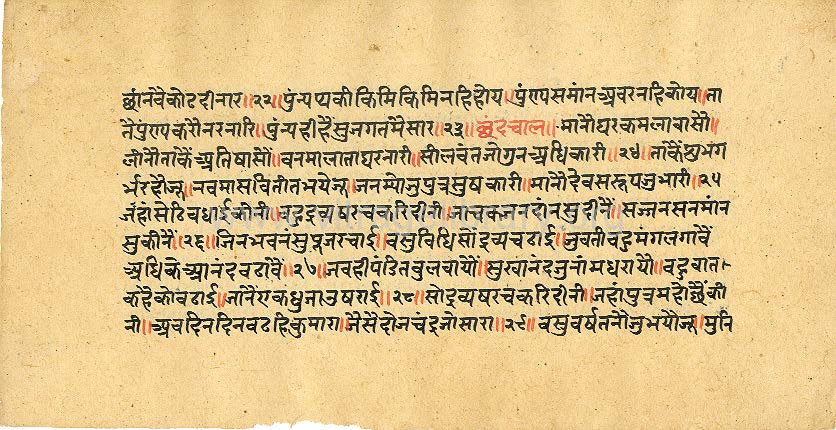 छांनवै कोटदीनार॥२२॥पुंन्यप्यकी किमि किमि न हि होय।पुंण्य समांन अवर नहि कोय॥ता
तै पुंण्य करौ नर नारि।पुंन्य ही है सु जगत मै सार॥२३॥छंद चाल॥मांनौ घर कमला वासौ॥
लीनौ ताकै अति षासौ॥वनमाला ता घर नारी॥सीलवंत जो गुन अधिकारी॥२४॥ताकै शुभ गर
र्भ रहौजू॥नव मास वितीत भयेजू॥जनम्यो जु पुत्र सुषकारी॥मांनौ देव सरूप जु भारी॥२५
जहां सेठि वधाई कीनी॥वहु द्रव्य षरच करि दीनी॥जाचक जन दांन सु दीनौ॥सज्जन सनमांन
सु कीनौ॥२६॥जिन भवन सु पूज रचाई॥वसु विधि सौं द्रव्य चढाई॥जुवती वहु मंगल गावै॥
अधिके आनंद वढावै॥२७॥जव ही पंडित वुलवायौ॥सुखानंद जु नांम धरायौ॥वहु वात
कहै को वढाई॥जांनै एक धुजा उषराई॥२८॥सो द्रव्य षरच करि दीनी॥जहां पुत्र महोछै की
नी॥अव दिन दिन वढहि कुमारा॥जैसै दोज चंद्र जो सारा॥२९॥वसु वर्ष तनौ जु भयौजू॥मुनि